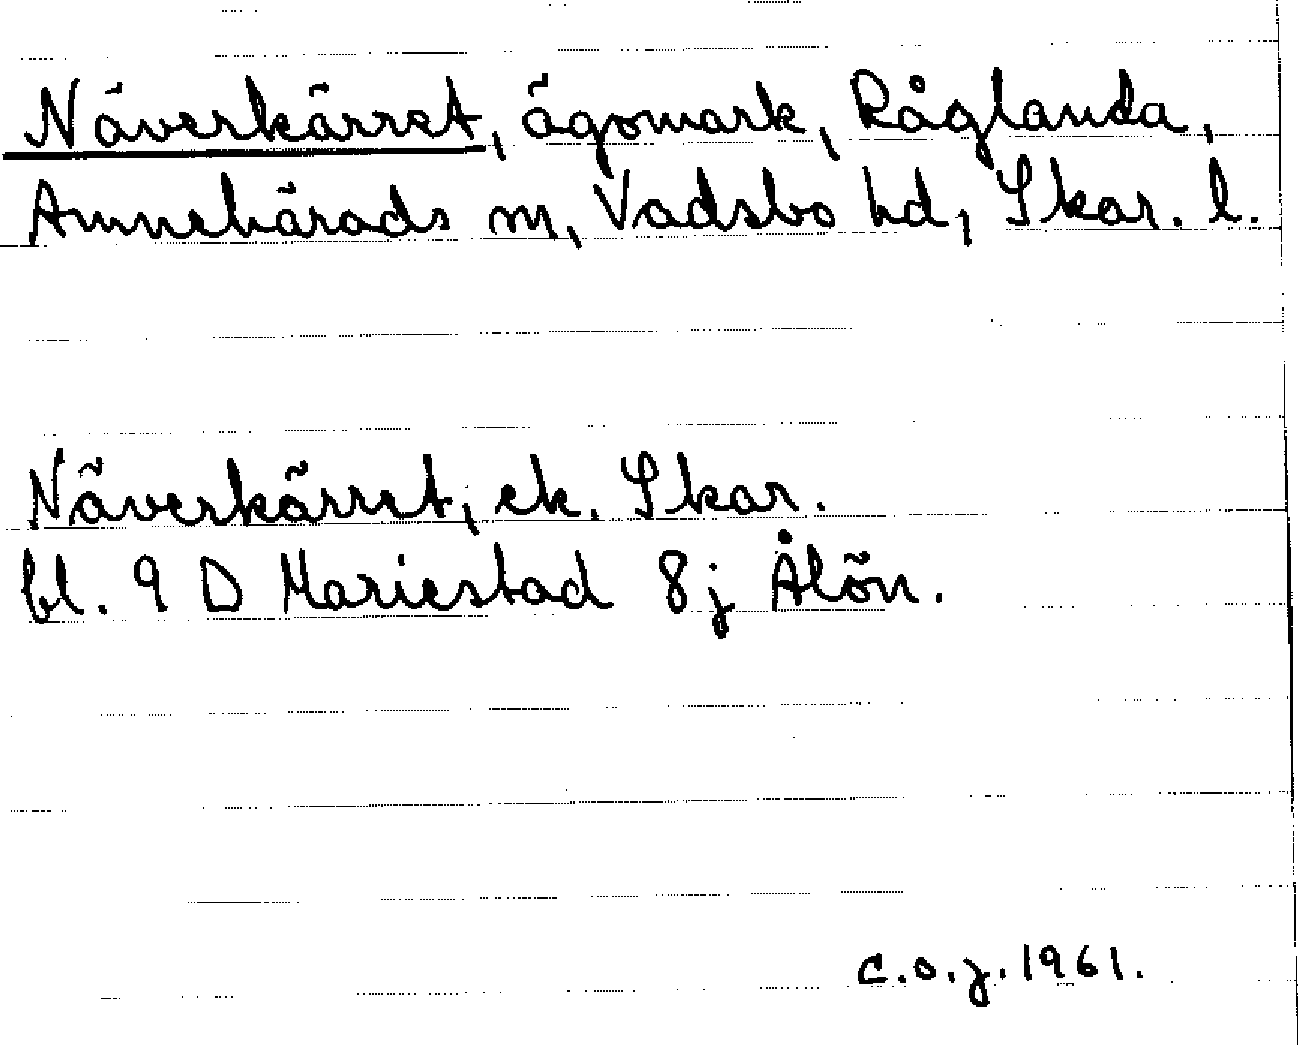 Näverkärret, ägomark, Råglanda,
Amnehärads sn, Vadsbo hd, Skar. l.
Näverkärret, ek. Skar.
bl. 9 D Mariestad 8j Ålön.
C.O.J. 1961.